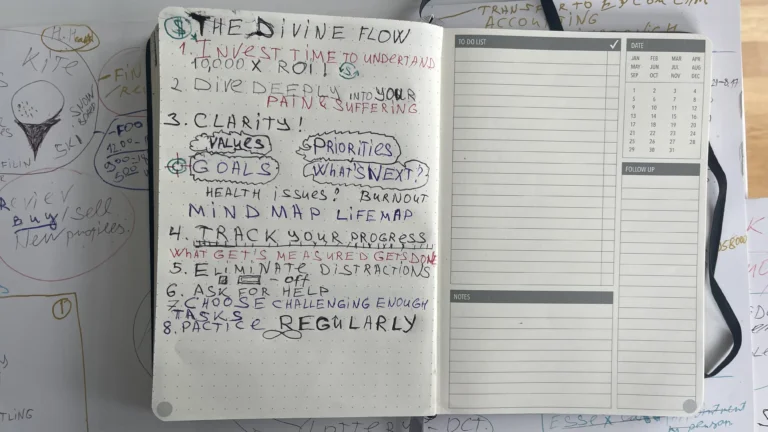 THE DIVINE FLOW
1. INVEST TIME TO UNDERTAND
10,000 X ROI!
2. DIVE DEEPLY INTO YOUR
PAIN & SUFFERING
3. CLARITY!
VALUES PRIORITIES
GOALS WHAT'S NEXT?
HEALTH ISSUES? BURNOUT
MIND MAP LIFEMAP
4. TRACK YOUR PROGRESS
WHAT GET'S MEASURED GETS DONE
5. ELIMINATE DISTRACTIONS
- off
6. ASK FOR HELP
7. CHOOSE CHALLENGING ENOUGH
TASKS
8. PACTICE REGULARLY
TO DO LIST
DATE
JAN FEB MAR APR
MAY JUN JUL AUG
SEP OCT NOV DEC
1 2 3 4
5 6 7 8
9 10 11 12
13 14 15 16
17 18 19 20
21 22 23 24
25 26 27 28
29 30 31
FOLLOW UP
NOTES
KITE
SNOW
BOARD
SKI
BUY / Sell
New
TRANSFER TO
ACCOUNTING